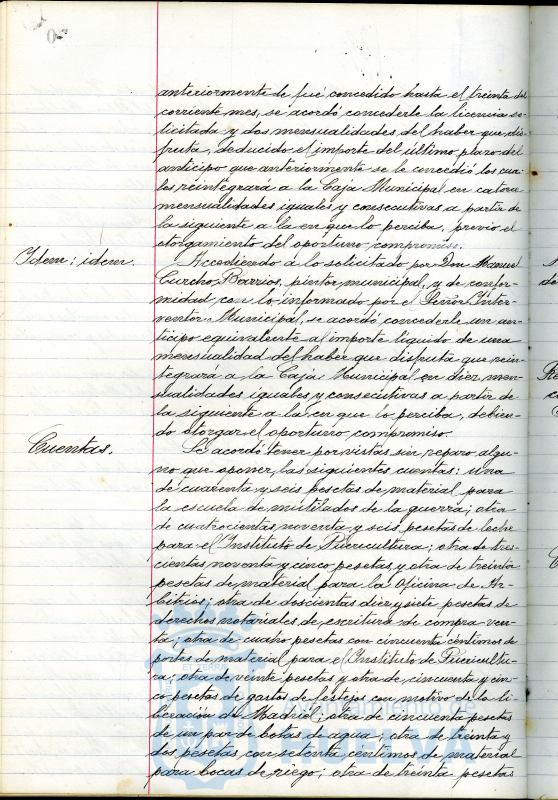 anteriormente le fué concedido hasta el treinta del
corriente mes, se acordó concederle la licencia so-
licitada y dos mensualidades del haber que dis-
fruta, deducido el importe del último plazo del
anticipo que anteriormente se le concedió los cua-
les reintegrará a la Caja Municipal en catorce
mensualidades iguales y consecutivas a partir de
la siguiente a la en que lo perciba, previo el
otorgamiento del oportuno compromiso.
Idem: idem.
Accediendo a lo solicitado por Don Manuel
Curcho Barrios, pintor municipal, y de confor-
midad con lo informado por el Señor Inter-
ventor Municipal, se acordó concederle un an-
ticipo equivalente al importe líquido de una
mensualidad del haber que disfruta que rein-
tegrará a la Caja Municipal en diez men-
sualidades iguales y consecutivas a partir de
la siguiente a la en que lo perciba, debien-
do otorgar el oportuno compromiso.
Cuentas.
Se acordó tener por vistas sin reparo algu-
no que oponer, las siguientes cuentas: una
de cuarenta y seis pesetas de material para
la escuela de mutilados de la guerra; otra
de cuatrocientas noventa y seis pesetas de leche
para el Instituto de Puericultura; otra de tres-
cientas noventa y cinco pesetas y otra de treinta
pesetas de material para la Oficina de Ar-
bitrios; otra de doscientas diez y siete pesetas de
derechos notariales de escritura de compra-ven-
ta; otra de cuatro pesetas con cincuenta céntimos de
portes de material para el Instituto de Puericultu-
ra; otra de veinte pesetas y otra de cincuenta y cin-
co pesetas de gastos de festejos con motivo de la li-
beración de Madrid; otra de cincuenta pesetas
de un par de botas de agua; otra de treinta y
dos pesetas con setenta céntimos de material
para bocas de riego; otra de treinta pesetas
Ayuntamiento de
HUELVA